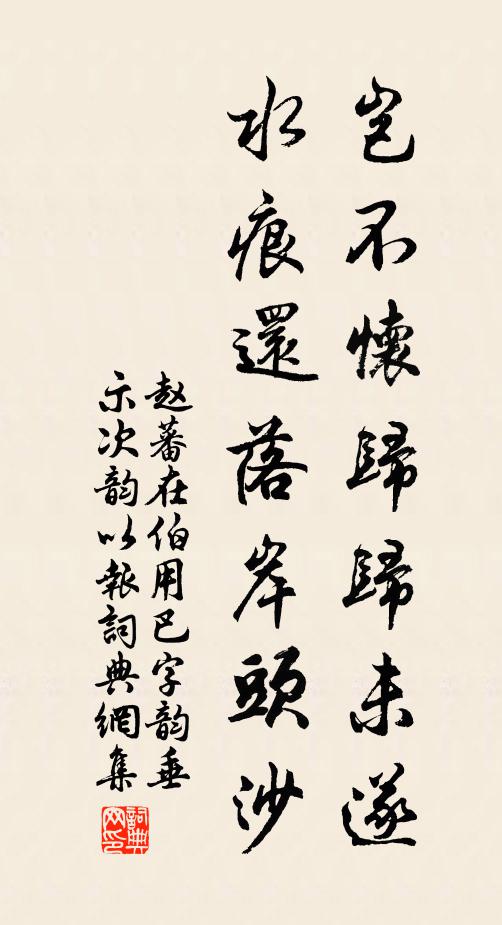 豈不懷歸歸未遂
水痕還落岸頭沙
赵蕃在伯用巴字韵垂
示次韵以報詞典網集
詞典
网印